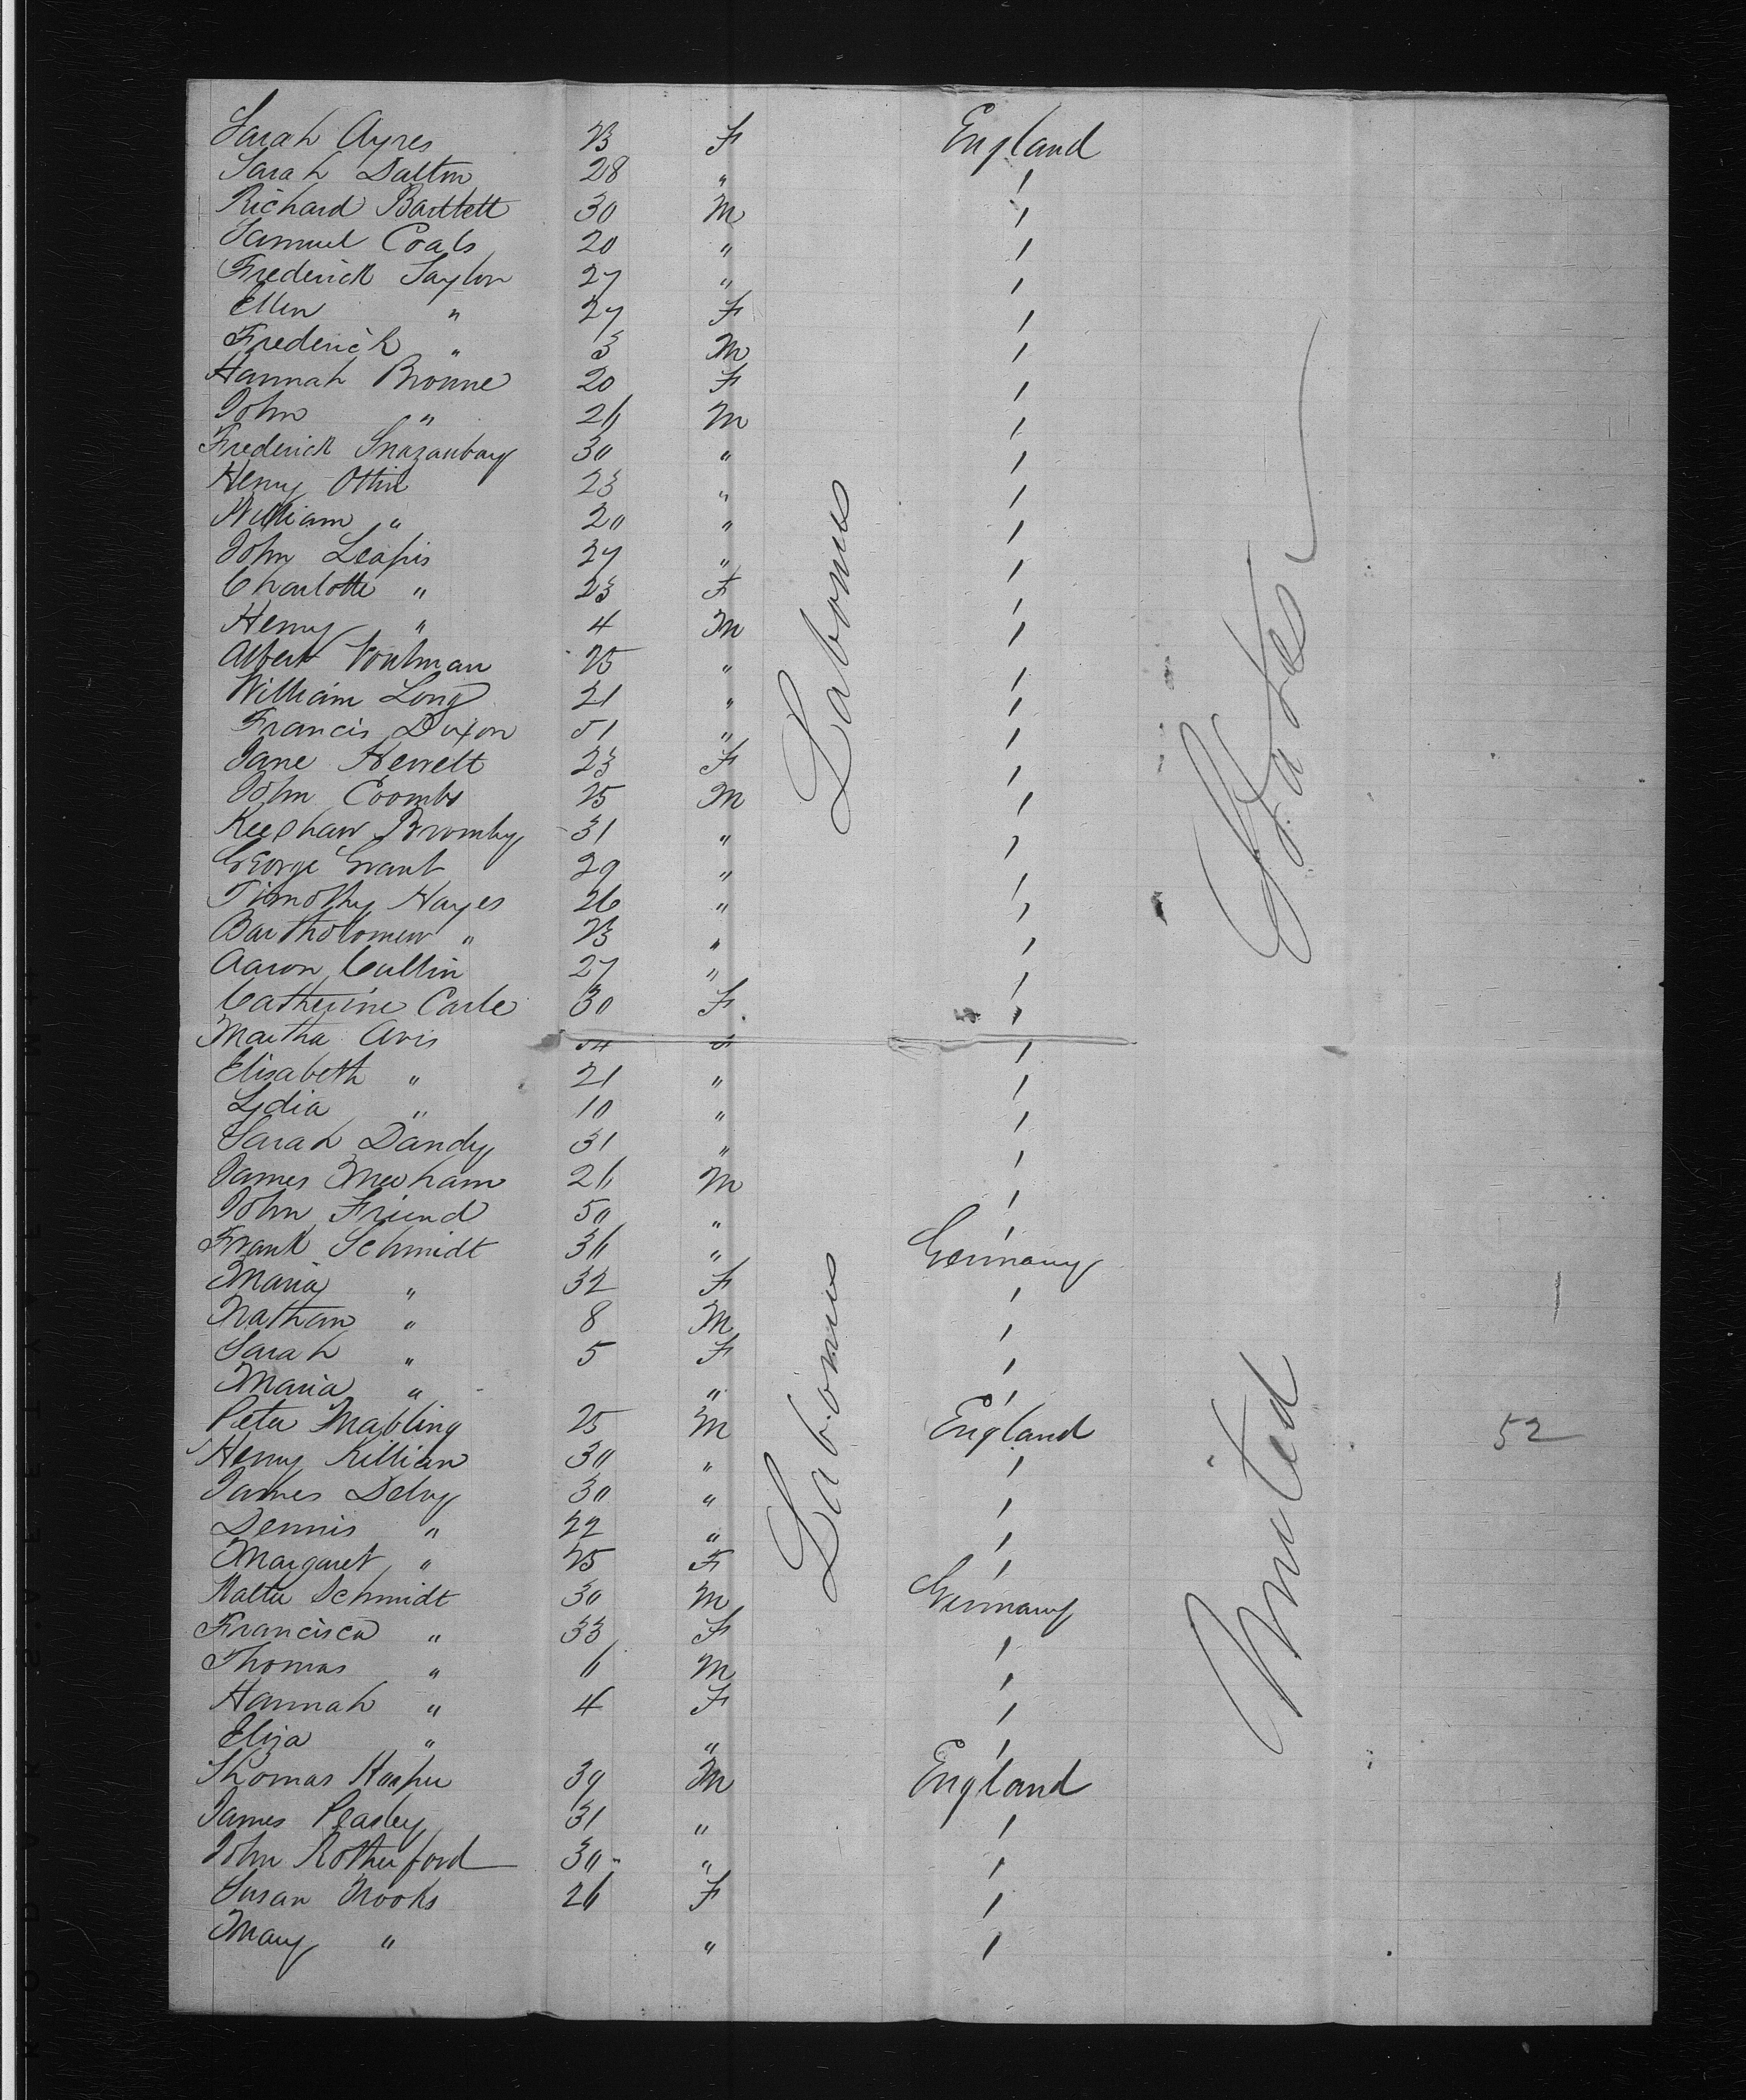 Sarah Ayres 23 F England
Sarah Dalton 28 " /
Richard Bartlett 30 M /
Samuel Coals 20 " /
Frederick Taylor 27 " /
Ellen " 27 F /
Frederick " 3 M /
Hannah Browne 20 F /
John " 26 M /
Frederick 30 " /
Henry Ottin 23 " /
William " 20 " /
John 27 " /
Charlotte " 23 F /
Henry " 4 M /
Albert 25 " /
William Long 21 " /
Francis Dixon 51 " /
Jane Hewett 23 F /
John Coombs 25 M /
Bromby 31 " /
George Grant 29 " /
Timothy Hayes 26 " /
Bartholomew " 23 " /
Aaron Cullin 27 " /
Catherine Carle 30 F /
Martha Avis 54 F /
Elisabeth " 21 " /
Lydia " 10 " /
Sarah Dandy 31 " /
James Meeham 26 M /
John Friend 50 " /
Frank Schmidt 36 " Germany
Maria " 32 F /
Nathan " 8 M /
Sarah " 5 F /
Maria " " /
Peter Mabling 25 M England
Henry Killian 30 " /
James 30 " /
Dennis " 22 " /
Margaret " 25 F /
Schmidt 30 M Germany
Francisca " 33 F /
Thomas " 6 M /
Hannah " 4 F /
Eliza " " /
Thomas Harper 39 M England
James Peasley 31 " /
John Rotherford 30 " /
Susan Nooks 26 F /
Mary " " /
Labourers
Labourers
United States
52